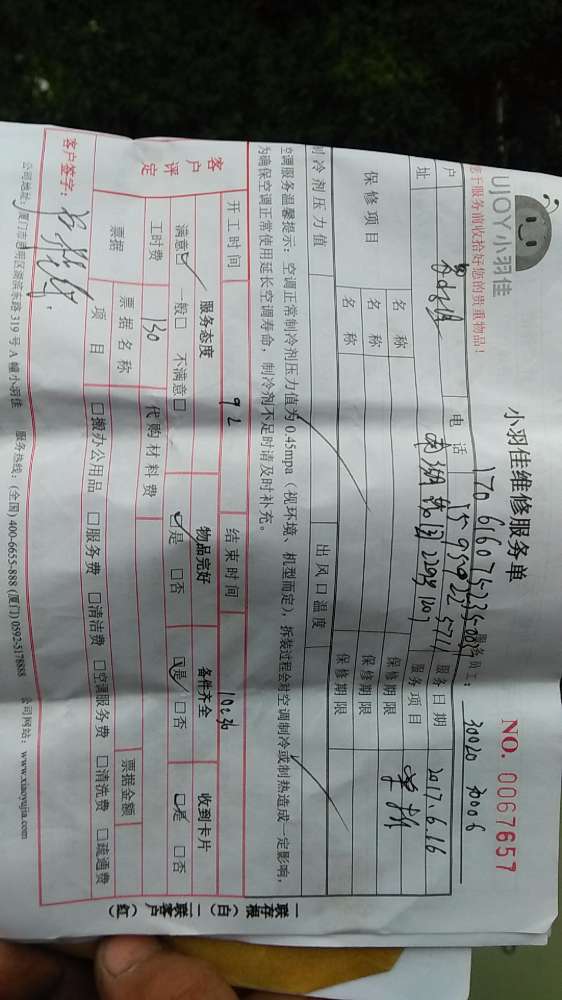 UJOY小羽佳
小羽佳维修服务单
NO. 0067657
您于服务前收拾好您的贵重物品!
服务员工: 30020 30006
户
电话
服务日期 2017.6.16
址
服务项目
单拆
保修项目
名称
保修期限
名称
保修期限
名称
保修期限
制冷剂压力值
出风口温度
空调服务温馨提示: 空调正常制冷剂压力值为0.45mpa (视环境、机型而定), 拆装过程会对空调制冷或制热造成一定影响,
为确保空调正常使用延长空调寿命, 制冷剂不足时请及时补充。
开工时间
结束时间 10:30
客户评定
服务态度
物品完好
备件齐全
收到卡片
满意☑ 一般☐ 不满意☐
☑是 ☐否
☑是 ☐否
☑是 ☐否
工时费 130
代购材料费
票据
票据名称
票据金额
项目
☐搬办公用品 ☐服务费 ☐清洁费 ☐空调服务费 ☐清洗费 ☐疏通费
客户签字:
公司地址: 厦门市思明区湖滨东路319号A幢小羽佳 服务热线: (全国) 400-6655-888 (厦门) 0592-5178888 公司网站: www.xiaoyujia.com
一联存根 (白) 二联客户 (红)